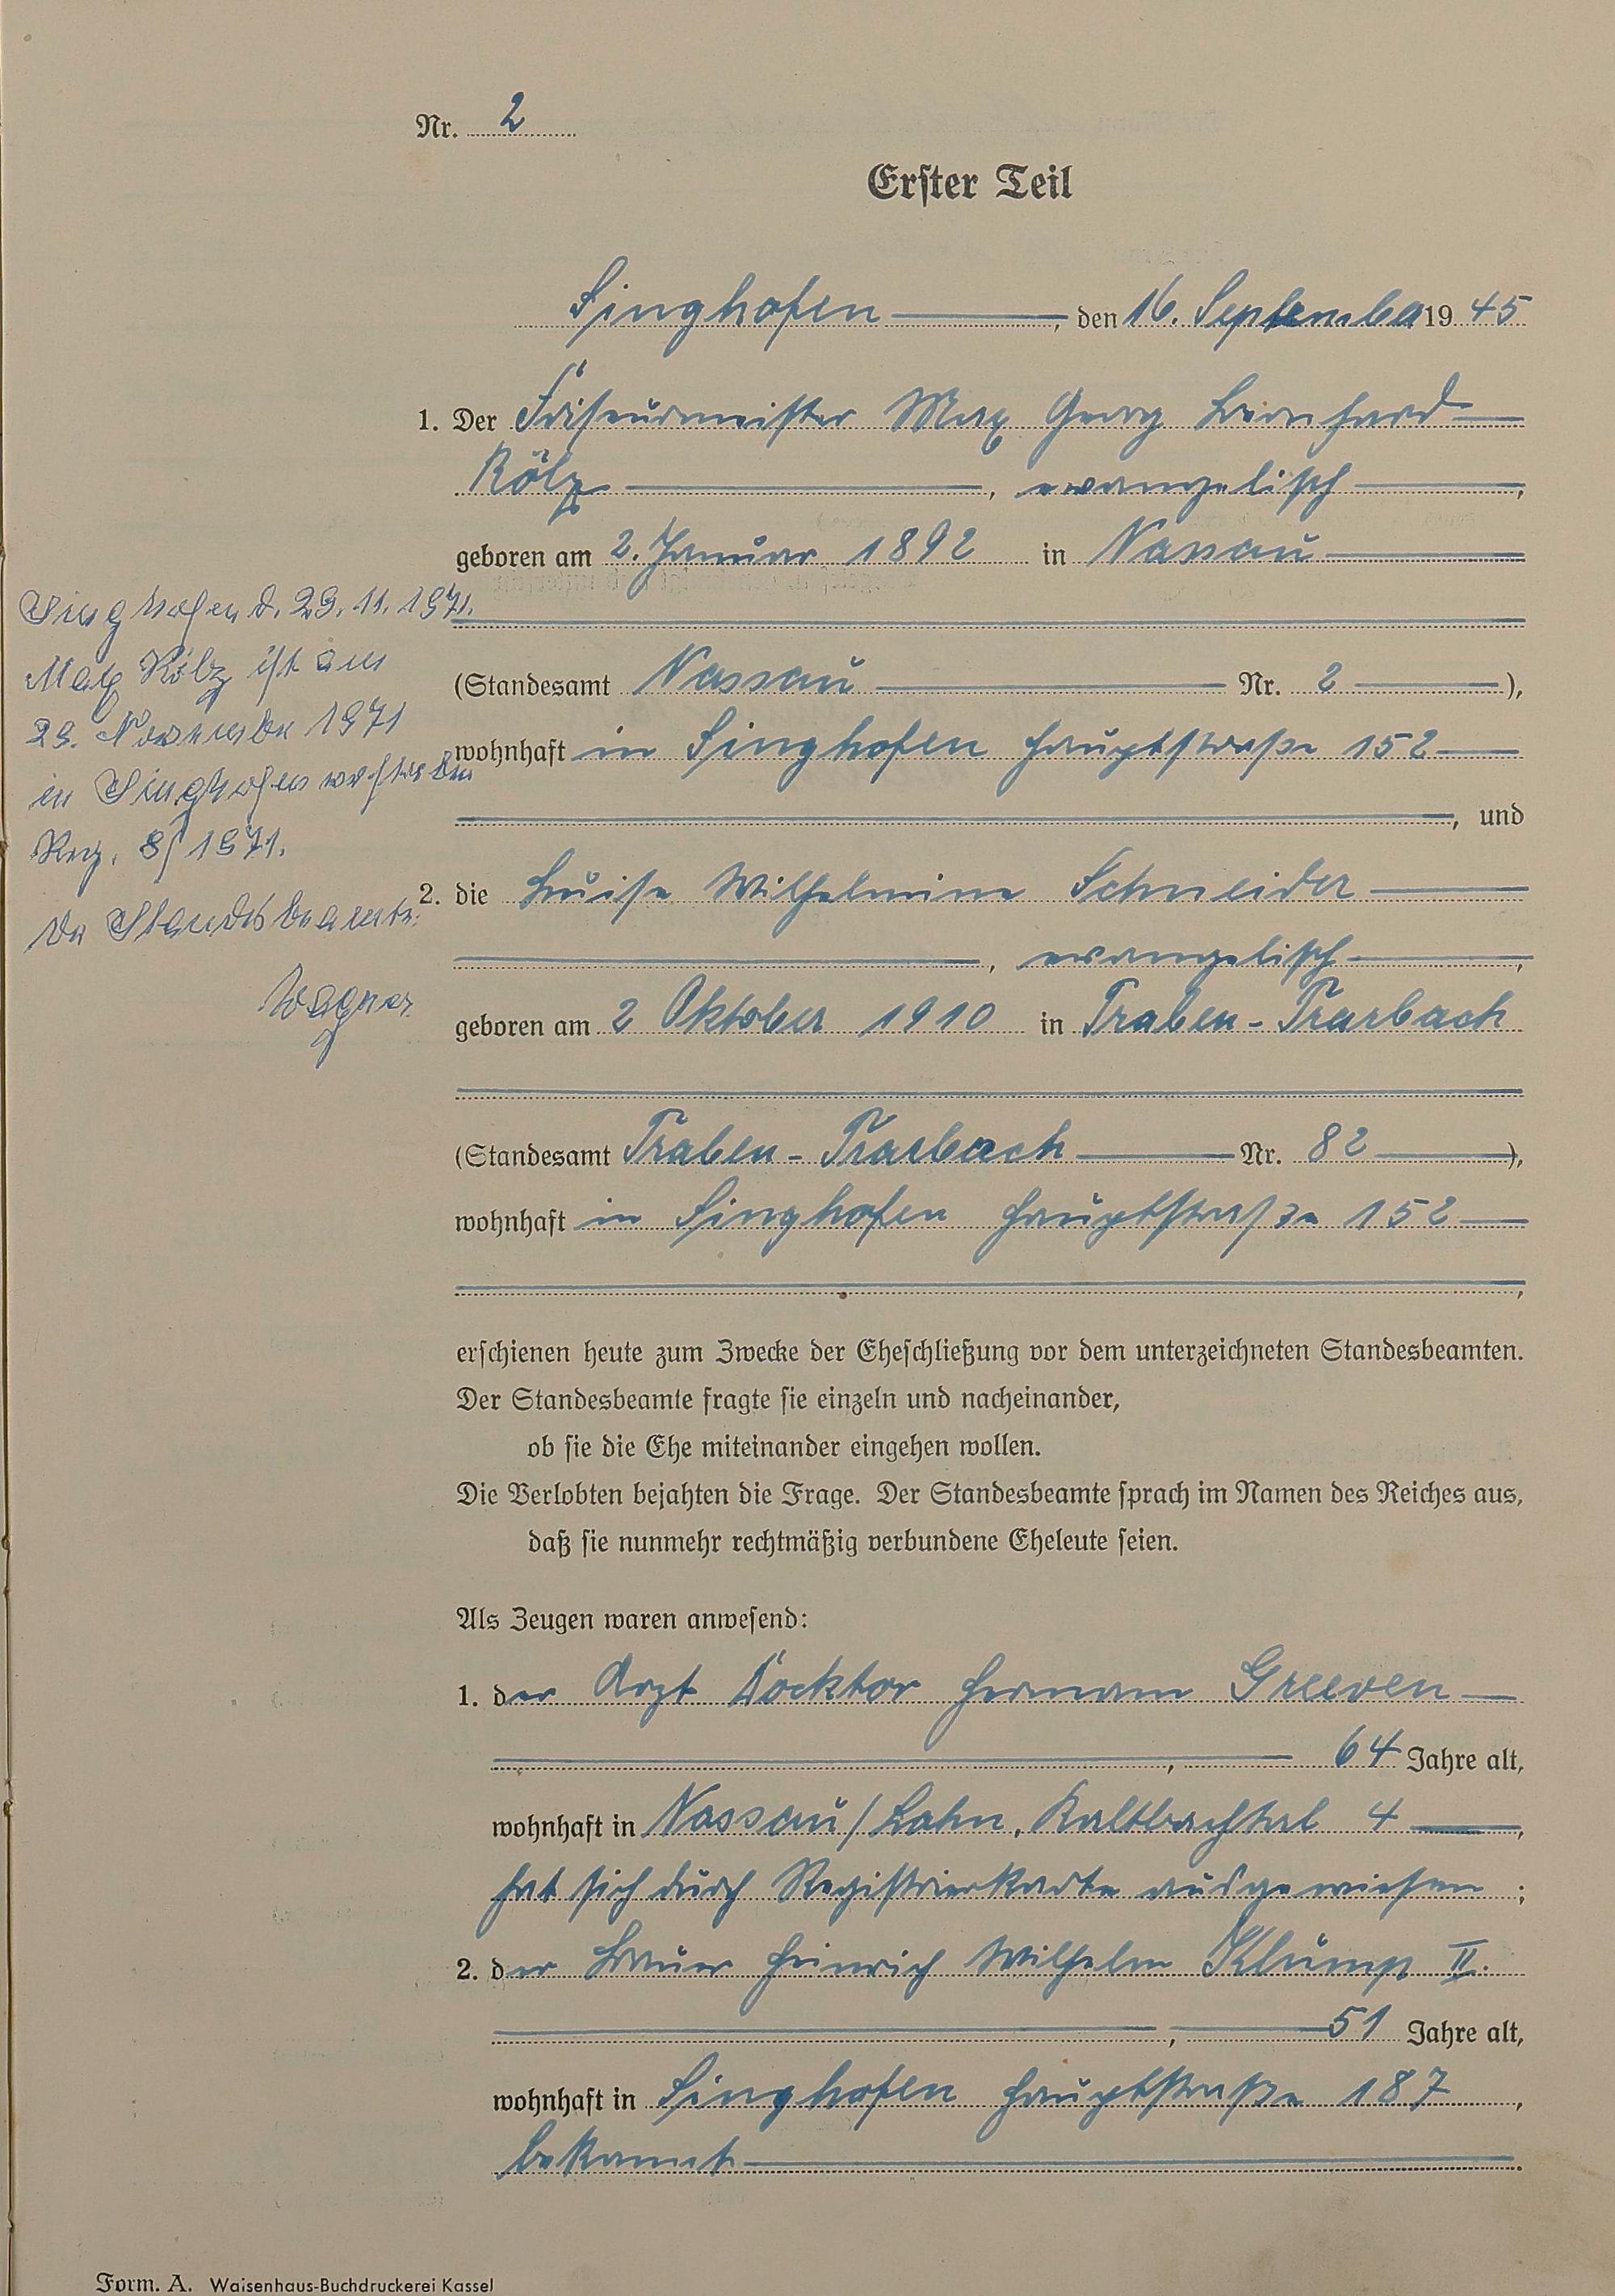 Nr. 2
Erster Teil
Singhofen, den 16. September 1945
1. Der Friseurmeister Max Georg Bernhard
Kölz, evangelisch,
geboren am 2. Januar 1892 in Nassau
(Standesamt Nassau Nr. 2),
wohnhaft in Singhofen Hauptstraße 152
, und
2. die Luise Wilhelmine Schneider
, evangelisch,
geboren am 2 Oktober 1910 in Traben-Trarbach
(Standesamt Traben-Trarbach Nr. 82),
wohnhaft in Singhofen Hauptstraße 152
,
erschienen heute zum Zwecke der Eheschließung vor dem unterzeichneten Standesbeamten.
Der Standesbeamte fragte sie einzeln und nacheinander,
ob sie die Ehe miteinander eingehen wollen.
Die Verlobten bejahten die Frage. Der Standesbeamte sprach im Namen des Reiches aus,
daß sie nunmehr rechtmäßig verbundene Eheleute seien.
Als Zeugen waren anwesend:
1. der Arzt Docktor Hermann Greeven
, 64 Jahre alt,
wohnhaft in Nassau/Lahn, Kaltbachtal 4,
hat sich durch Registrierkarte ausgewiesen;
2. der Bauer Heinrich Wilhelm Klump II.
, 51 Jahre alt,
wohnhaft in Singhofen Hauptstraße 187,
bekannt.
Singhofen d. 29. 11. 1971.
Max Kölz ist am
29. November 1971
in Singhofen verstorben
Reg. 8/1971.
Der Standesbeamte:
Wagner
Form. A. Waisenhaus-Buchdruckerei Kassel